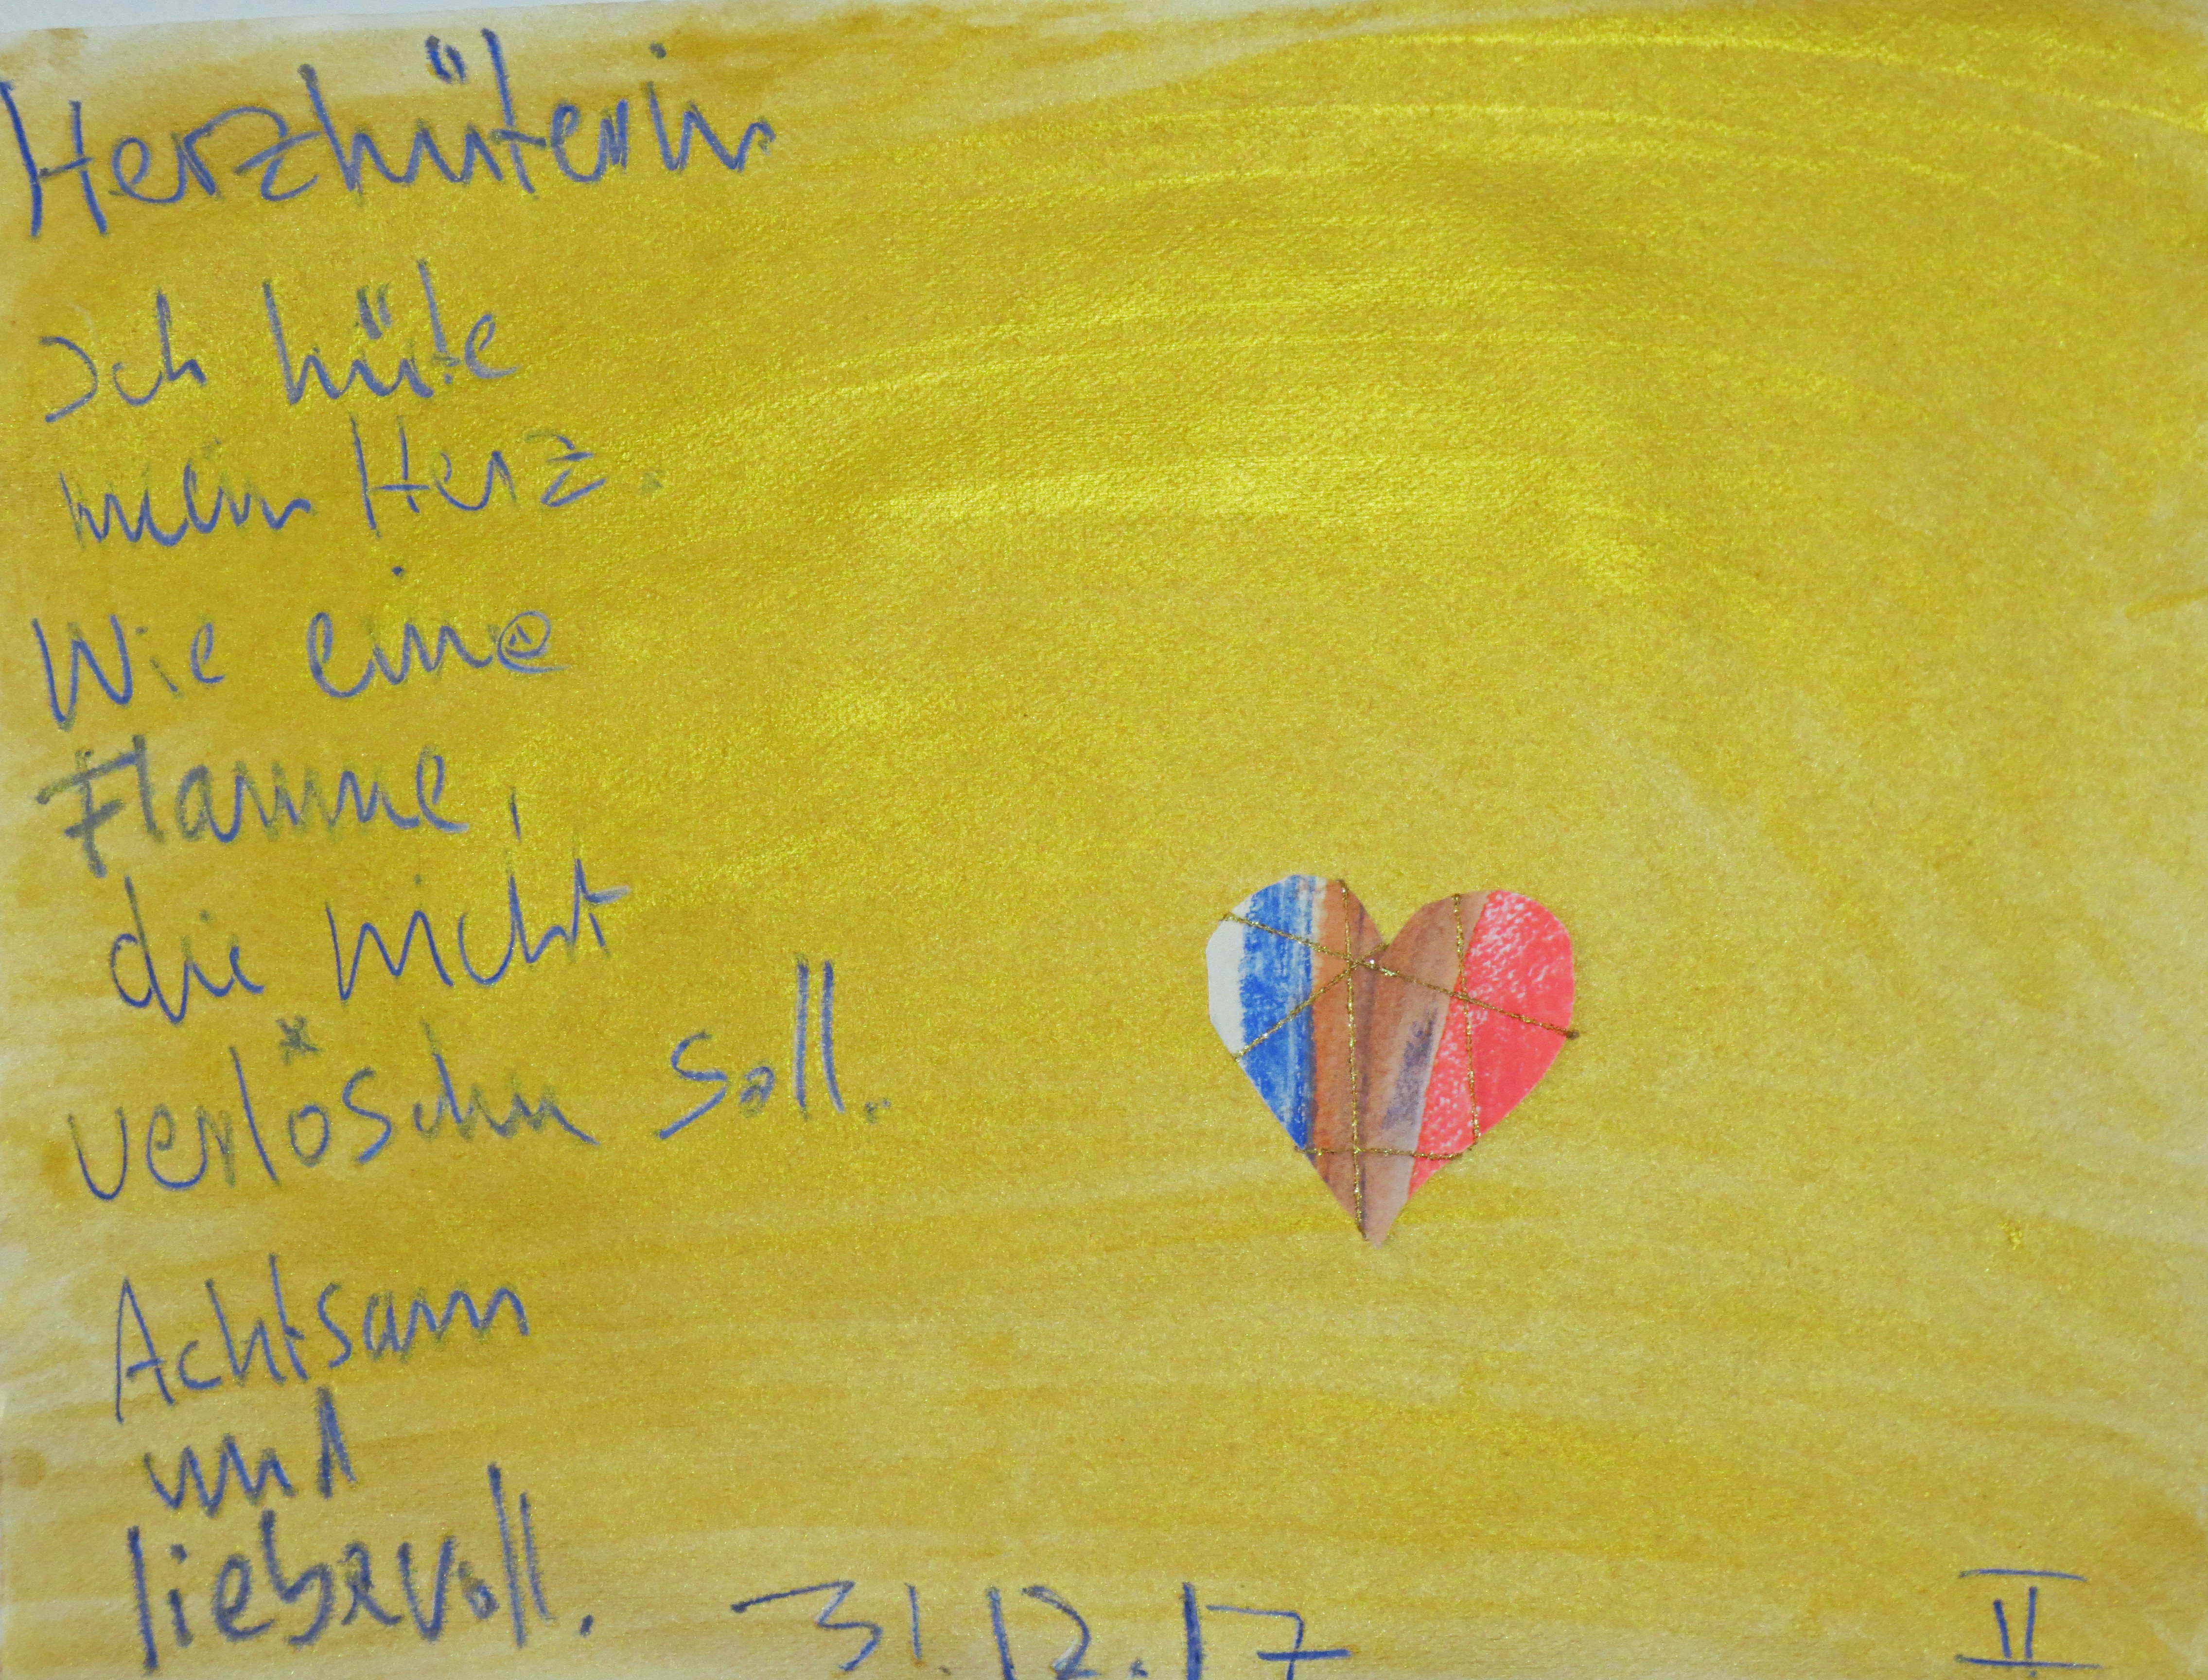 Herzhüterin
Ich hüte
mein Herz.
Wie eine
Flamme,
die nicht
verlöschen soll.
Achtsam
und
liebevoll.
31.12.17
II